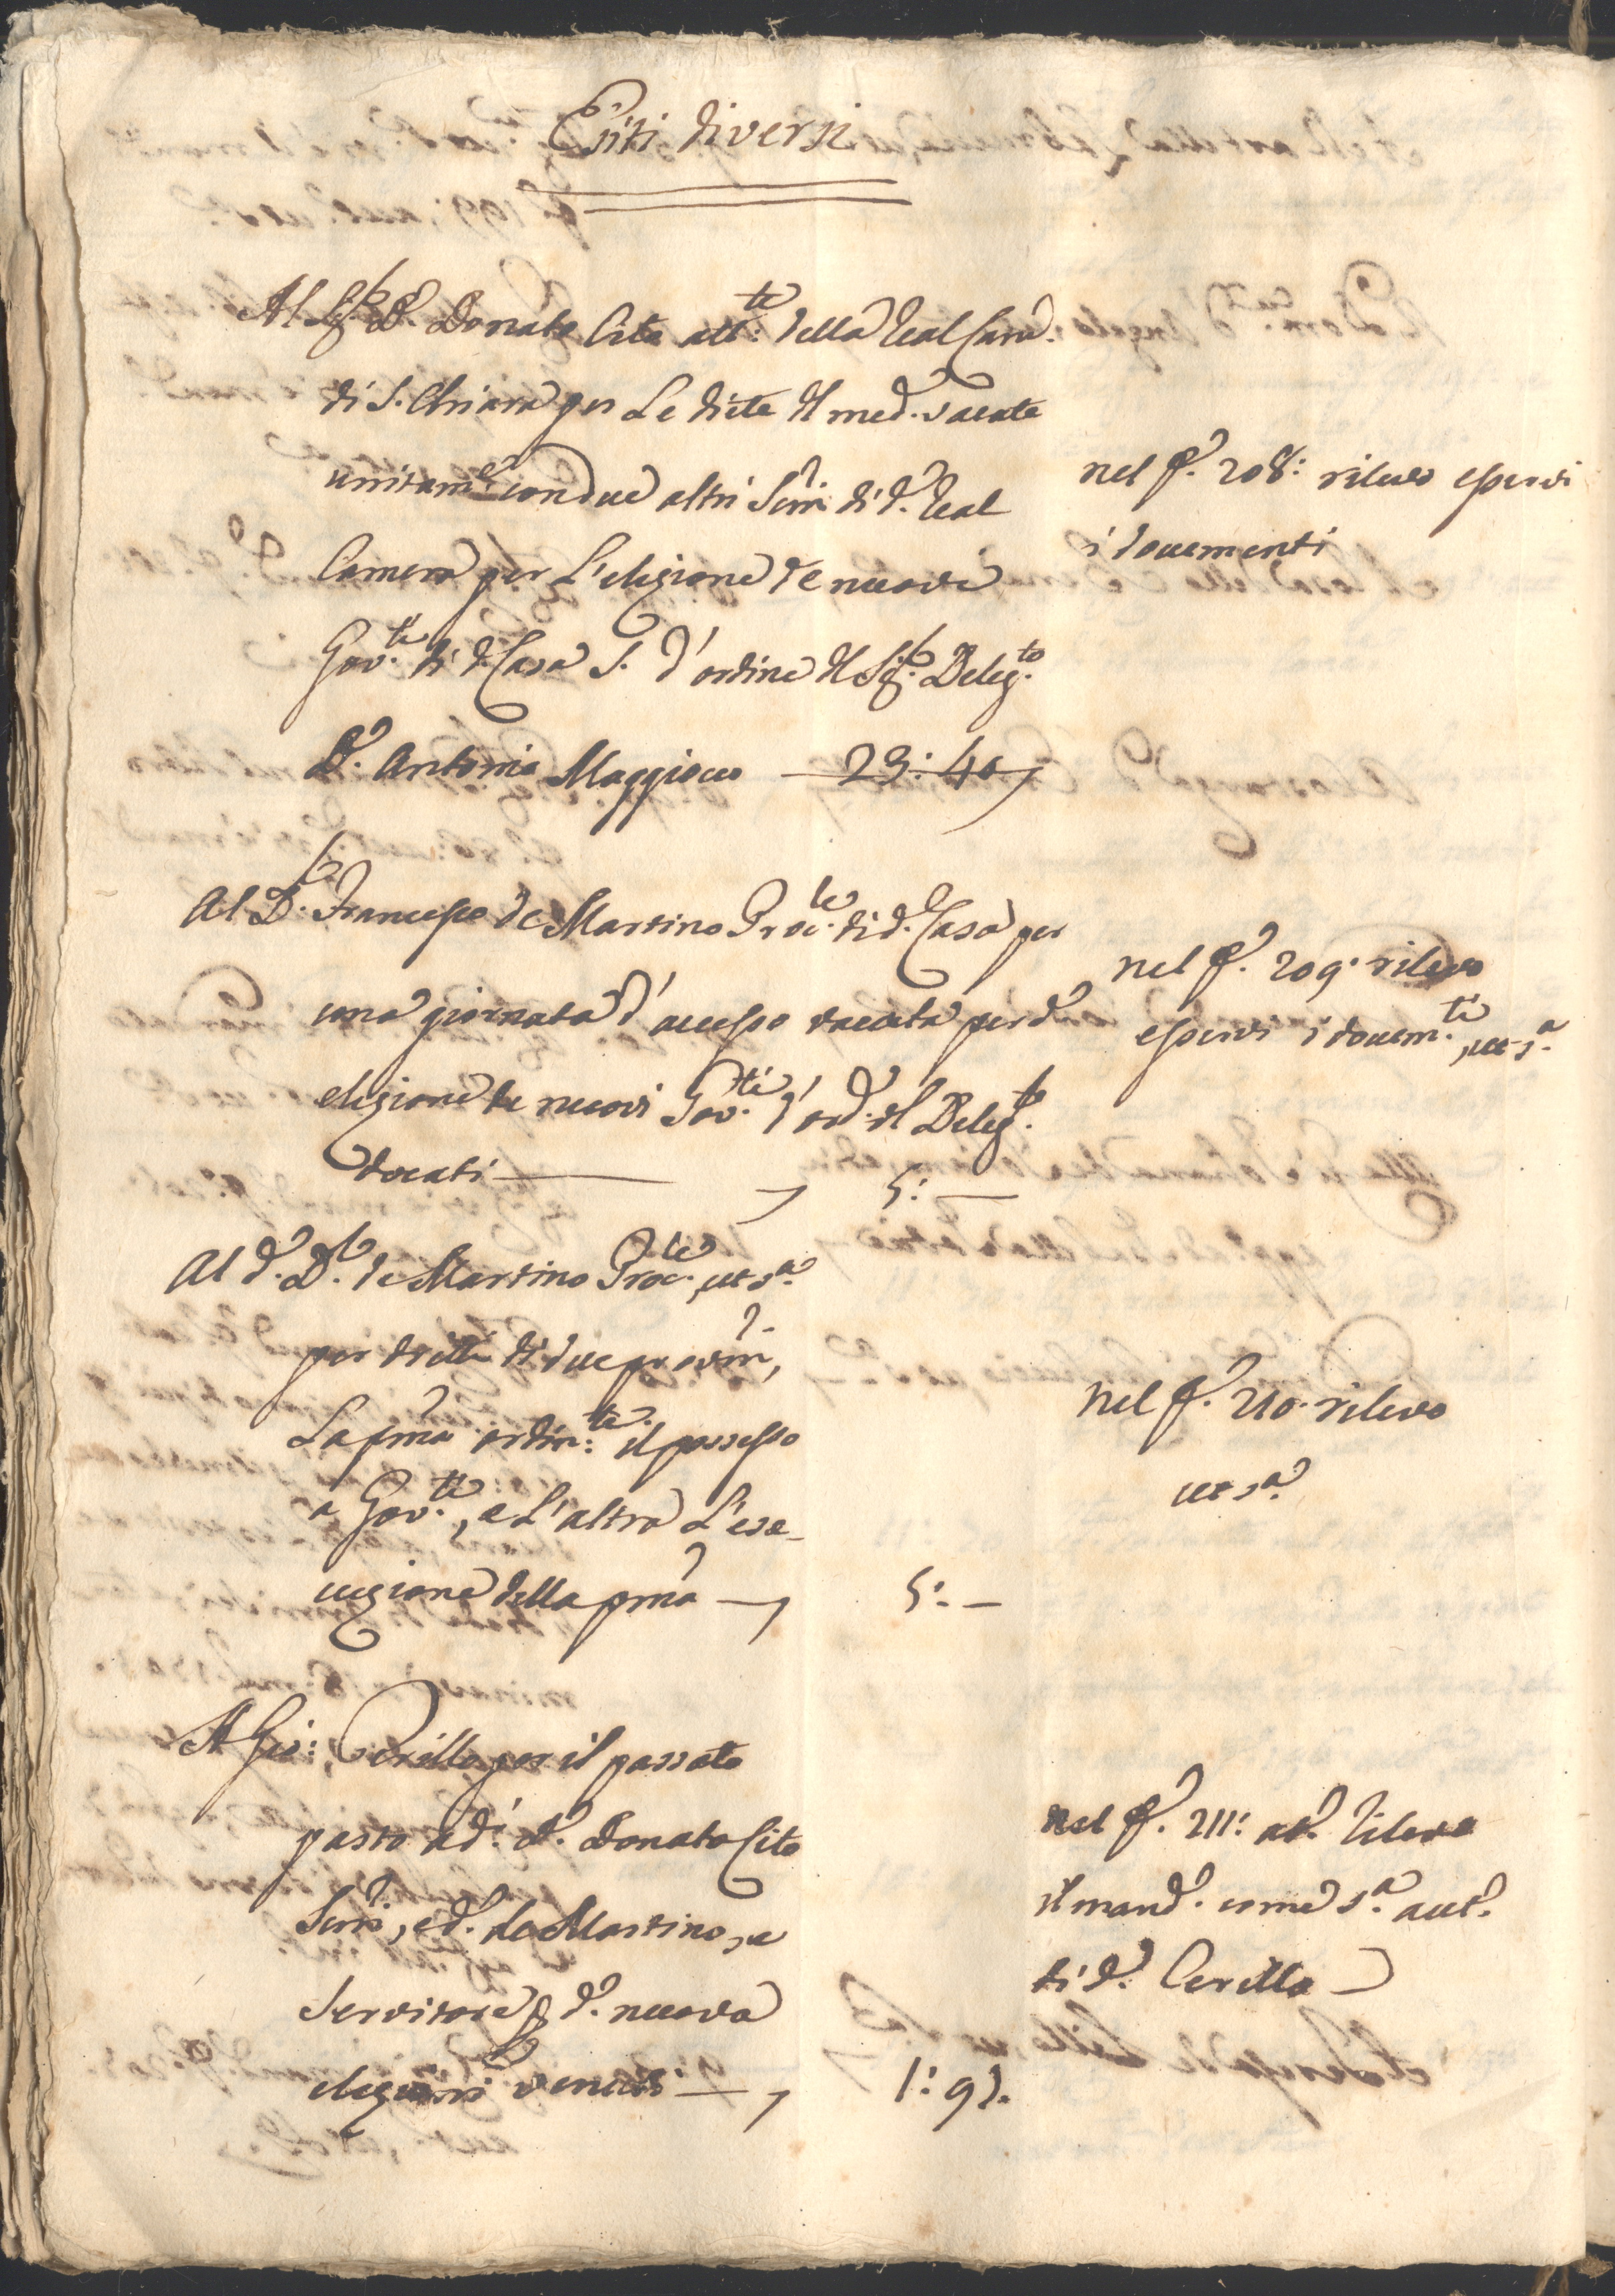 Esiti diversi
Al Sig.r D. Donato Cito att.te della Real Cam.a
di S. Chiara per Le diete del med.o vacate
unitam.te con due altri Scriv.ni di d.a Real
Camera per L'elezione de nuovi
Gov.ri di d.a Casa S. d'ordine del Sig.r Deleg.to
D. Antonio Maggiocco — 29: 40
nel f. 208: rilevo esservi
i documenti
Al D.r Francesco de Martino Proc.re di d.a Casa per
una giornata d'accesso vacata per d.a
elezione de nuovi Gov.ri d'ord.e del Deleg.to
docati — 5: —
nel f. 209. rilevo
esservi i docum.ti, ut s.a
Al d.o D.r de Martino Proc.re, ut s.a
per dritti di due provi.ni,
La prima ordin.te il possesso
a Gov.ri, e L'altra L'ese-
cuzione della prima — 5: —
nel f. 210. rilevo
ut s.a
A Gio: Cerillo per il passato
pasto a d.i D. Donato Cito
Scriv.ni, e d.o de Martino, e
Servitore p d.a nuova
elezione venuti — 1: 97.
nel f. 211: at.o rilevo
il mand.o come s.a quiet.o
di d.o Cerillo —